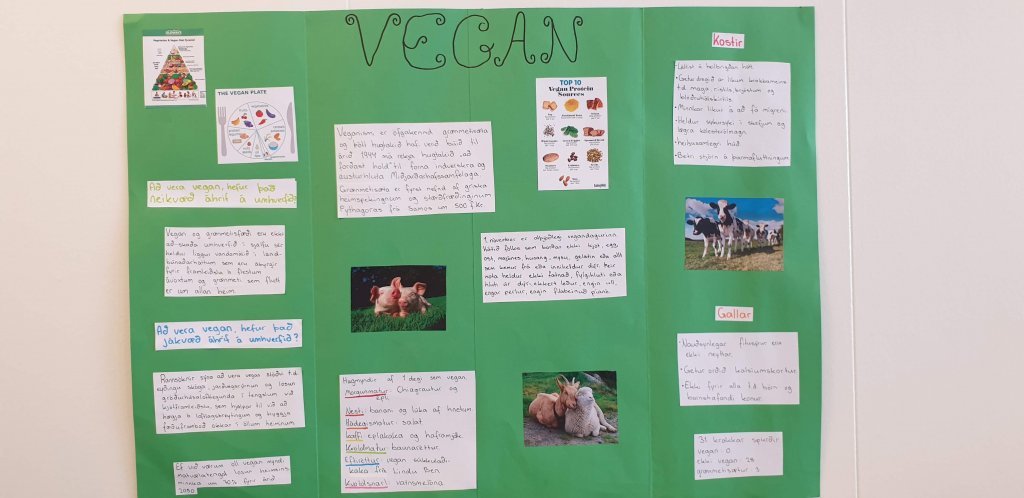 VEGAN
Vegetarian & Vegan Diet Pyramid
THE VEGAN PLATE
Að vera vegan, hefur það
neikvæð áhrif á umhverfið?
Vegan og grænmetisfæði eru ekki
að skaða umhverfið í sjálfu sér
heldur liggur vandamálið í land-
búnaðarháttum sem eru ábyrgir
fyrir framleiðslu á flestum
ávöxtum og grænmeti sem flutt
er um allan heim.
Að vera vegan, hefur það
jákvæð áhrif á umhverfið?
Rannsóknir sýna að vera vegan stöðvi t.d
eyðingu skóga, jarðvegsrýrnun og losun
gróðurhúsalofttegunda í tengslum við
kjötframleiðslu, sem hjálpar til við að
hægja á loftslagsbreytingum og tryggja
fæðuframboð okkar í öllum heiminum.
Ef við værum öll vegan myndi
matvælatengd losun heimsins
minnka um 70% fyrir árið
2050
Veganism er öfgakennd grænmetisæta
og þótt hugtakið haf verið búið til
árið 1944 má rekja hugtakið „að
forðast hold" til forna indverskra og
austurhluta Miðjarðarhafssamfélaga.
Grænmetisæta er fyrst nefnd af gríska
heimspekingnum og stærðfræðingnum
Pythagoras frá Samos um 500 f.Kr.
Hugmyndir af 1 degi sem vegan.
Morgunmatur: Chiagrautur og
epli
Nesti: banani og lúka af hnetum
Hádegismatur: salat
kaffi: eplakaka og haframjólk
Kvöldmatur: baunaréttur
Eftirréttur: vegan súkkulaði-
kaka frá Lindu Ben
Kvöldsnarl: vatnsmelóna
TOP 10
Vegan Protein
Sources
1. nóvember er alþjóðlegi vegandagurinn
Hátíð fólks sem borðar ekki kjöt, egg,
ost, majónes, hunang, mysu, gelatín eða allt
sem kemur frá eða inniheldur dýr. Þeir
nota heldur ekki fatnað, fylgihluti eða
hluti úr dýri: ekkert leður, engin ull,
engar perlur, engin fílabeinuð píanó.
Kostir
• Léttist á heilbrigðan hátt
• Getur dregið úr líkum krabbameins
t.d maga, ristils, brjóstum og
blöðruhálskirtils
• Minnkar líkur á að fá mígreni
• Heldur sykursýki í skefjum og
lægra kólesterólmagn
• Bætir stjórn á þarmaflutningum
Gallar
• Nauðsynlegar fitusýrur eru
ekki neyttar.
• Getur orðið kalsíumskortur
• Ekki fyrir alla t.d börn og
barnshafandi konur.
31 krakkar spurðir
vegan: 0
ekki vegan: 28
grænmetisætur: 3